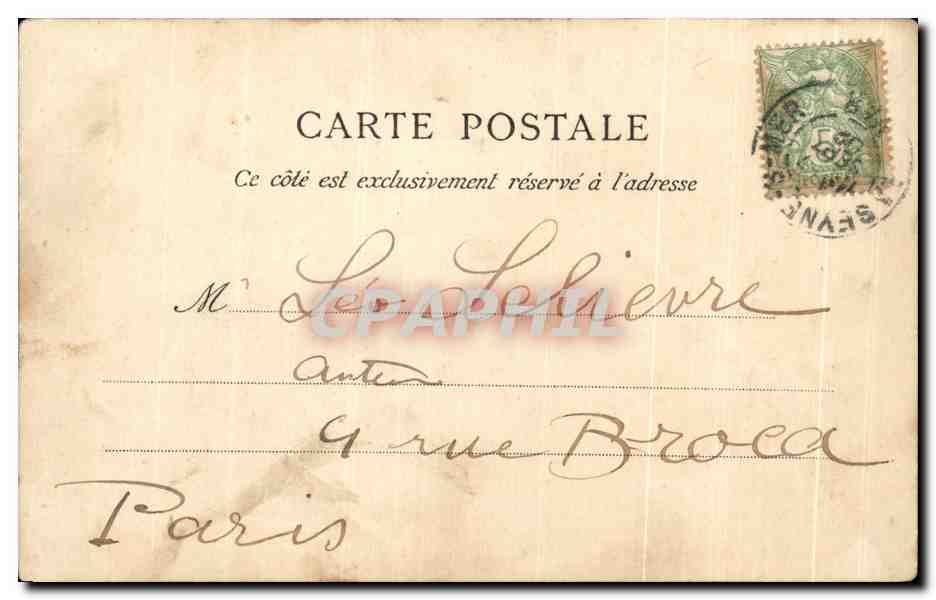 CARTE POSTALE
Ce côté est exclusivement réservé à l'adresse
Mr Léo Lelièvre
CPAPHIL
auteur
4 rue Broca
Paris
5
SEYNE-S-MER